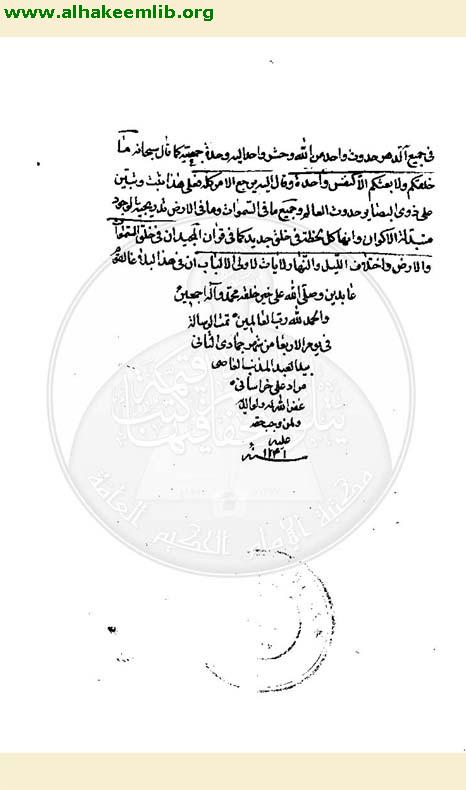 www.alhakeemlib.org
في جميع الدهر حدوث واحد من الله وحشر واحد اليه وحدة جمعية كما قال سبحانه ما
خلقكم ولا بعثكم الا كنفس واحدة وقال اليه يرجع الامر كله فعلى هذا ثبت وتبين
على ذوى البصاير حدوث العالم وجميع ما فى السموات وما فى الارض تدريجية الوجود
متبدلة الاكوان وانها كل لحظة فى خلق جديد كما فى قرآن المجيد ان فى خلق السموات
والارض واختلاف الليل والنهار لايات لاولى الالباب ان فى هذا لبلاغا لقوم
عابدين وصلى الله على خير خلقه محمد وآله اجمعين
والحمد لله رب العالمين تمت الرسالة
فى يوم الاربعا من شهر جمادى الثانى
بيد العبد المذنب العاصى
مراد على خراسانى
غفر الله له ولوالديه
ولمن وجب حقه
عليه
سنة ١٢٤١
مكتبة الإمام الحكيم العامة